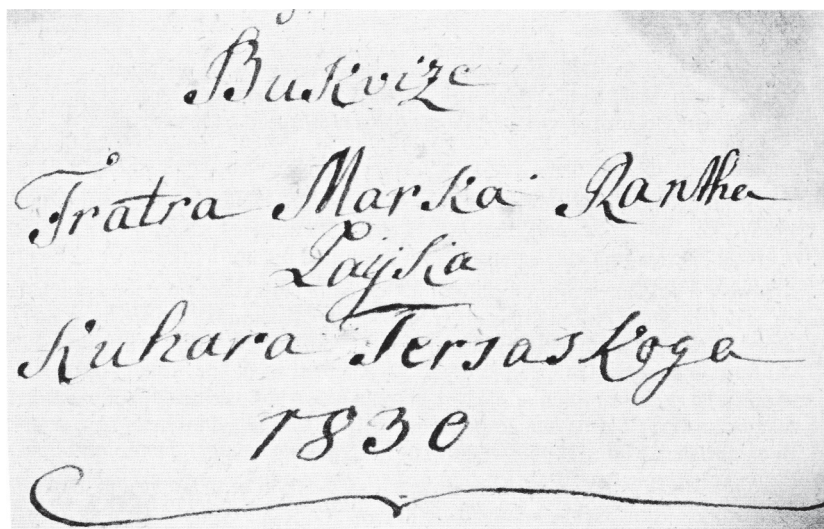 Bukvize
Fratra Marka Ranthe
Laijka
Kuhara Tersaskoga
1830